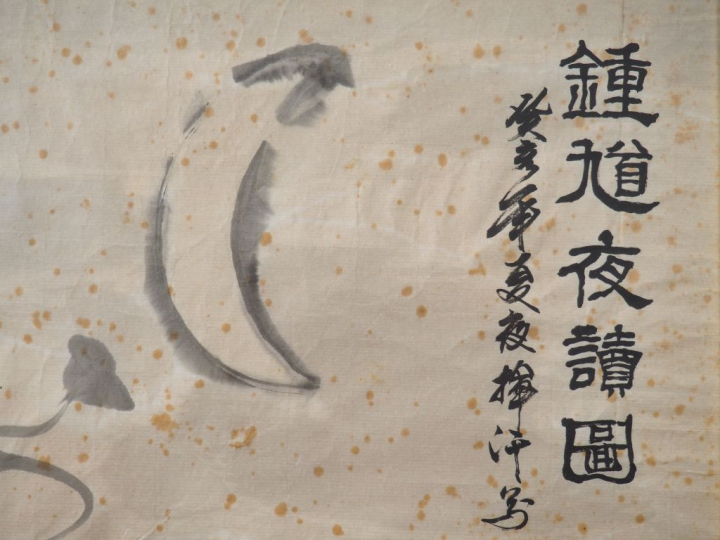 鍾馗夜讀圖
癸亥年夏夜揮汗寫